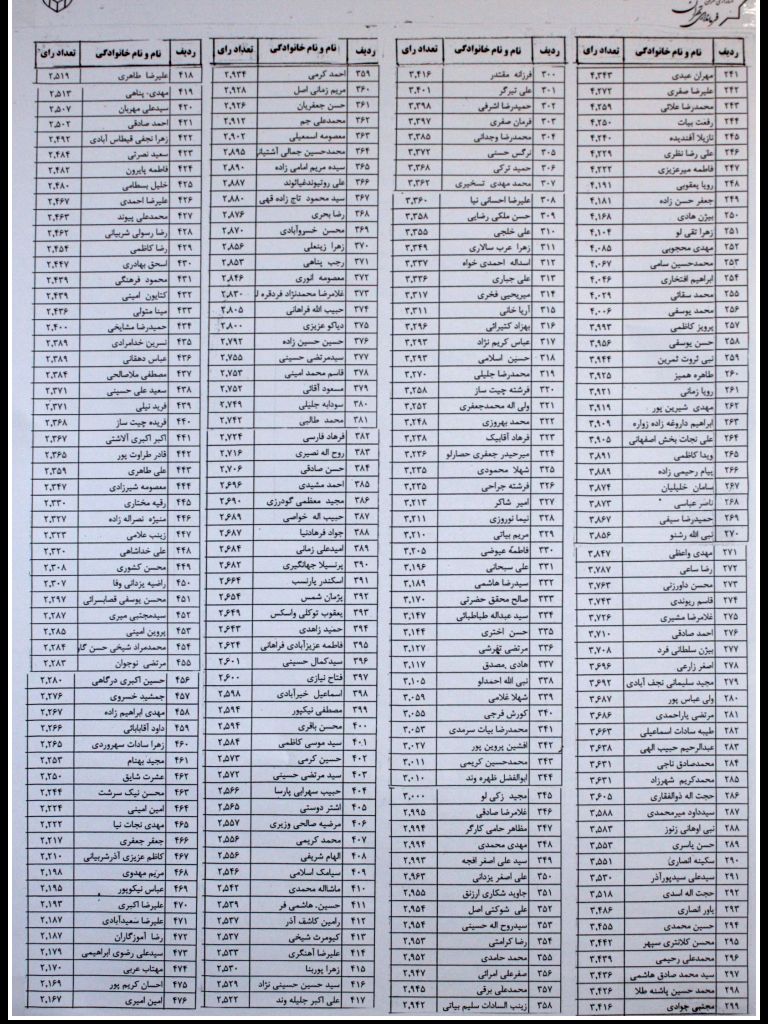 فرمانداری تهران
ردیف نام و نام خانوادگی تعداد رای
۲۴۱ مهران عبدی ۴,۳۴۳
۲۴۲ علیرضا صفری ۴,۲۷۲
۲۴۳ محمدرضا علائی ۴,۲۵۹
۲۴۴ رفعت بیات ۴,۲۵۰
۲۴۵ نازیلا آفندیده ۴,۲۴۰
۲۴۶ علی رضا نظری ۴,۲۲۹
۲۴۷ فاطمه میرعزیزی ۴,۲۲۲
۲۴۸ رویا یعقوبی ۴,۱۹۱
۲۴۹ جعفر حسن زاده ۴,۱۸۱
۲۵۰ بیژن هادی ۴,۱۶۸
۲۵۱ زهرا تقی لو ۴,۱۰۴
۲۵۲ مهدی محجوبی ۴,۰۸۵
۲۵۳ محمدحسین سامی ۴,۰۶۷
۲۵۴ ابراهیم افتخاری ۴,۰۴۶
۲۵۵ محمد سقائی ۴,۰۲۹
۲۵۶ محمد یوسفی ۴,۰۰۶
۲۵۷ پرویز کاظمی ۳,۹۹۳
۲۵۸ حسن یوسفی ۳,۹۵۶
۲۵۹ نبی ثروت ثمرین ۳,۹۴۴
۲۶۰ طاهره همیز ۳,۹۲۵
۲۶۱ رویا زمانی ۳,۹۲۱
۲۶۲ مهدی شیرین پور ۳,۹۱۹
۲۶۳ ابراهیم داروغه زاده زواره ۳,۹۰۹
۲۶۴ علی نجات بخش اصفهانی ۳,۹۰۵
۲۶۵ ویدا کاظمی ۳,۸۹۱
۲۶۶ پیام رحیمی زاده ۳,۸۸۹
۲۶۷ سامان خلیلیان ۳,۸۷۴
۲۶۸ ناصر عباسی ۳,۸۷۳
۲۶۹ حمیدرضا سیفی ۳,۸۶۷
۲۷۰ نبی الله رشنو ۳,۸۵۶
۲۷۱ مهدی واعظی ۳,۸۴۷
۲۷۲ رضا ساعی ۳,۷۸۷
۲۷۳ محسن داورزنی ۳,۷۶۳
۲۷۴ قاسم ریوندی ۳,۷۴۳
۲۷۵ غلامرضا مشیری ۳,۷۲۶
۲۷۶ احمد صادقی ۳,۷۱۰
۲۷۷ بیژن سلطانی فرد ۳,۷۰۸
۲۷۸ اصغر زارعی ۳,۶۹۶
۲۷۹ مجید سلیمانی نجف آبادی ۳,۶۹۲
۲۸۰ ولی عباس پور ۳,۶۸۷
۲۸۱ مرتضی یاراحمدی ۳,۶۸۶
۲۸۲ طیبه سادات اسماعیلی ۳,۶۶۳
۲۸۳ عبدالرحیم حبیب الهی ۳,۶۳۸
۲۸۴ محمدصادق تاجی ۳,۶۳۱
۲۸۵ محمدکریم شهرزاد ۳,۶۳۱
۲۸۶ حجت اله ذوالفقاری ۳,۶۰۵
۲۸۷ سیدداود میرمحمدی ۳,۵۸۸
۲۸۸ نبی اوهانی زنوز ۳,۵۸۳
۲۸۹ حسن یاسری ۳,۵۵۳
۲۹۰ سکینه انصاری ۳,۵۵۱
۲۹۱ سیدعلی سیدپورآذر ۳,۵۳۰
۲۹۲ حجت اله اسدی ۳,۵۱۸
۲۹۳ یاور انصاری ۳,۴۸۶
۲۹۴ حسین محمدی ۳,۴۵۵
۲۹۵ محسن کلانتری سپهر ۳,۴۴۲
۲۹۶ محمدعلی رحیمی ۳,۴۳۹
۲۹۷ سید محمد صادق هاشمی ۳,۴۳۶
۲۹۸ محمد حسین پاشنه طلا ۳,۴۲۶
۲۹۹ مجتبی جوادی ۳,۴۱۶
ردیف نام و نام خانوادگی تعداد رای
۳۰۰ فرزانه مقتدر ۳,۴۱۶
۳۰۱ علی تیرگر ۳,۴۰۱
۳۰۲ حمیدرضا اشرفی ۳,۳۹۸
۳۰۳ فرمان صفری ۳,۳۹۷
۳۰۴ محمدرضا وجدانی ۳,۳۸۵
۳۰۵ نرگس حسنی ۳,۳۷۲
۳۰۶ حمید ترکی ۳,۳۶۸
۳۰۷ محمد مهدی تسخیری ۳,۳۶۲
۳۰۸ علیرضا احسانی نیا ۳,۳۶۰
۳۰۹ حسن ملکی رضایی ۳,۳۵۸
۳۱۰ علی خلجی ۳,۳۵۵
۳۱۱ زهرا عرب سالاری ۳,۳۴۹
۳۱۲ اسداله احمدی خواه ۳,۳۳۷
۳۱۳ علی جباری ۳,۳۳۶
۳۱۴ میریحیی فخری ۳,۳۱۷
۳۱۵ آریا خانی ۳,۳۱۱
۳۱۶ بهزاد کثیرائی ۳,۲۹۶
۳۱۷ عباس کریم نژاد ۳,۲۹۳
۳۱۸ حسین اسلامی ۳,۲۹۳
۳۱۹ محمدرضا جلیلی ۳,۲۷۰
۳۲۰ فرشته چیت ساز ۳,۲۵۸
۳۲۱ ولی اله محمدجعفری ۳,۲۵۲
۳۲۲ محمد بهروزی ۳,۲۴۸
۳۲۳ فرهاد آقابیک ۳,۲۳۸
۳۲۴ میرحیدر جعفری حصارلو ۳,۲۳۶
۳۲۵ شهلا محمودی ۳,۲۳۵
۳۲۶ فرشته جراحی ۳,۲۳۵
۳۲۷ امیر شاکر ۳,۲۱۳
۳۲۸ نیما نوروزی ۳,۲۱۱
۳۲۹ مریم بیاتی ۳,۲۱۰
۳۳۰ فاطمه عیوضی ۳,۲۰۵
۳۳۱ علی سبحانی ۳,۱۹۶
۳۳۲ سیدرضا هاشمی ۳,۱۸۹
۳۳۳ صالح محقق حضرتی ۳,۱۷۰
۳۳۴ سید عبداله طباطبائی ۳,۱۴۷
۳۳۵ حسن اختری ۳,۱۴۴
۳۳۶ مرتضی تهرشی ۳,۱۲۷
۳۳۷ هادی مصدق ۳,۱۱۷
۳۳۸ نبی الله احمدلو ۳,۱۰۵
۳۳۹ شهلا غلامی ۳,۰۵۹
۳۴۰ کورش فرجی ۳,۰۵۵
۳۴۱ محمدرضا بیات سرمدی ۳,۰۵۳
۳۴۲ افشین پروین پور ۳,۰۲۷
۳۴۳ محمدحسین کریمی ۳,۰۱۱
۳۴۴ ابوالفضل ظهره وند ۳,۰۱۰
۳۴۵ مجید زکی لو ۳,۰۰۰
۳۴۶ غلامرضا صادقی ۲,۹۹۵
۳۴۷ مظاهر حامی کارگر ۲,۹۹۴
۳۴۸ مهدی محمدی ۲,۹۹۴
۳۴۹ سید علی اصغر افجه ۲,۹۹۳
۳۵۰ علی اصغر یزدانی ۲,۹۶۳
۳۵۱ جاوید شکاری ارزنق ۲,۹۵۵
۳۵۲ علی شوکتی اصل ۲,۹۵۴
۳۵۳ سیدروح اله حسینی ۲,۹۵۴
۳۵۴ رضا کرامتی ۲,۹۵۳
۳۵۵ محمد حامدی ۲,۹۵۲
۳۵۶ صفرعلی امرائی ۲,۹۴۷
۳۵۷ محمدعلی برقی ۲,۹۴۵
۳۵۸ زینب السادات سلیم بیاتی ۲,۹۴۲
ردیف نام و نام خانوادگی تعداد رای
۳۵۹ احمد کرمی ۲,۹۳۴
۳۶۰ مریم زمانی اصل ۲,۹۲۸
۳۶۱ حسن جعفریان ۲,۹۲۶
۳۶۲ محمدعلی جم ۲,۹۱۲
۳۶۳ معصومه اسمعیلی ۲,۹۰۲
۳۶۴ محمدحسین جمالی آشتیانی ۲,۸۹۵
۳۶۵ سیده مریم امامی زاده ۲,۸۹۰
۳۶۶ علی روئیوندغیاثوند ۲,۸۸۷
۳۶۷ سید محمود تاج زاده قهی ۲,۸۸۰
۳۶۸ رضا بحری ۲,۸۷۶
۳۶۹ محسن خسروآبادی ۲,۸۷۰
۳۷۰ زهرا زینعلی ۲,۸۵۶
۳۷۱ رجب پناهی ۲,۸۵۳
۳۷۲ معصومه انوری ۲,۸۴۶
۳۷۳ غلامرضا محمدنژاد فردقره لر ۲,۸۳۰
۳۷۴ حبیب الله فراهانی ۲,۸۰۵
۳۷۵ دیاکو عزیزی ۲,۸۰۰
۳۷۶ حسین حسین زاده ۲,۷۹۲
۳۷۷ سیدمرتضی حسینی ۲,۷۵۵
۳۷۸ قاسم محمد امینی ۲,۷۵۳
۳۷۹ مسعود آقائی ۲,۷۵۲
۳۸۰ سودابه جلیلی ۲,۷۴۹
۳۸۱ محمد طالبی ۲,۷۴۲
۳۸۲ فرهاد فارسی ۲,۷۲۴
۳۸۳ روح اله نصیری ۲,۷۱۶
۳۸۴ حسن صادقی ۲,۷۰۶
۳۸۵ احمد مشیدی ۲,۶۹۶
۳۸۶ مجید معظمی گودرزی ۲,۶۹۰
۳۸۷ حبیب اله خواصی ۲,۶۸۹
۳۸۸ جواد فرهادنیا ۲,۶۸۷
۳۸۹ امیدعلی زمانی ۲,۶۸۴
۳۹۰ پرنسیلا جهانگیری ۲,۶۸۲
۳۹۱ اسکندر پارنسب ۲,۶۶۴
۳۹۲ پژمان شمس ۲,۶۵۴
۳۹۳ یعقوب توکلی واسکس ۲,۶۴۹
۳۹۴ حمید زاهدی ۲,۶۴۳
۳۹۵ فاطمه عزیزآبادی فراهانی ۲,۶۲۴
۳۹۶ سیدکمال حسینی ۲,۶۰۱
۳۹۷ فتاح نیازی ۲,۶۰۰
۳۹۸ اسماعیل خیرآبادی ۲,۵۹۸
۳۹۹ مصطفی نیکپور ۲,۵۹۴
۴۰۰ محسن باقری ۲,۵۹۴
۴۰۱ سید موسی کاظمی ۲,۵۸۴
۴۰۲ حسین کرمی ۲,۵۷۳
۴۰۳ سید مرتضی حسینی ۲,۵۷۲
۴۰۴ حبیب سهرابی پارسا ۲,۵۶۶
۴۰۵ اشتر دوستی ۲,۵۶۵
۴۰۶ مرضیه صالحی وزیری ۲,۵۵۷
۴۰۷ محمد کریمی ۲,۵۵۶
۴۰۸ الهام شریفی ۲,۵۵۶
۴۰۹ سیامک اسلامی ۲,۵۴۶
۴۱۰ ماشااله محمدی ۲,۵۴۲
۴۱۱ حسین هاشمی فر ۲,۵۳۹
۴۱۲ رامین کاشف آذر ۲,۵۳۷
۴۱۳ کیومرث شیخی ۲,۵۳۷
۴۱۴ علیرضا آهنگری ۲,۵۳۳
۴۱۵ زهرا پوربنا ۲,۵۳۰
۴۱۶ سید حسین حسینی نژاد ۲,۵۲۹
۴۱۷ علی اکبر جلیله وند ۲,۵۲۲
ردیف نام و نام خانوادگی تعداد رای
۴۱۸ علیرضا طاهری ۲,۵۱۹
۴۱۹ مهدی پناهی ۲,۵۱۳
۴۲۰ سیدعلی مهربان ۲,۵۰۷
۴۲۱ احمد صادقی ۲,۵۰۲
۴۲۲ زهرا نجفی قیطاس آبادی ۲,۴۹۲
۴۲۳ سعید نصرتی ۲,۴۸۴
۴۲۴ فاطمه پایرون ۲,۴۸۲
۴۲۵ خلیل بسطامی ۲,۴۸۰
۴۲۶ علیرضا احمدی ۲,۴۶۷
۴۲۷ محمدعلی پیوند ۲,۴۶۳
۴۲۸ رضا رسولی شربیانی ۲,۴۶۲
۴۲۹ رضا کاظمی ۲,۴۵۴
۴۳۰ اسحق بهادری ۲,۴۴۷
۴۳۱ محمود فرهنگی ۲,۴۳۹
۴۳۲ کتایون امینی ۲,۴۳۹
۴۳۳ مینا متولی ۲,۴۳۶
۴۳۴ حمیدرضا مشایخی ۲,۴۰۰
۴۳۵ نسرین خدامرادی ۲,۳۸۹
۴۳۶ عباس دهقانی ۲,۳۸۹
۴۳۷ مصطفی ملاصالحی ۲,۳۸۴
۴۳۸ سعید علی حسینی ۲,۳۷۱
۴۳۹ فرید نیلی ۲,۳۷۱
۴۴۰ فریده چیت ساز ۲,۳۶۸
۴۴۱ اکبر اکبری آلاشتی ۲,۳۶۷
۴۴۲ قادر طراوت پور ۲,۳۶۵
۴۴۳ علی طاهری ۲,۳۵۹
۴۴۴ معصومه شیرزادی ۲,۳۴۷
۴۴۵ رقیه مختاری ۲,۳۳۰
۴۴۶ منیژه نصراله زاده ۲,۳۲۷
۴۴۷ زینب علامی ۲,۳۲۳
۴۴۸ علی خداشاهی ۲,۳۲۰
۴۴۹ محسن کشوری ۲,۳۰۸
۴۵۰ راضیه یزدانی وفا ۲,۳۰۷
۴۵۱ محسن یوسفی قصابسرائی ۲,۲۹۷
۴۵۲ سیدمجتبی میری ۲,۲۸۷
۴۵۳ پروین امینی ۲,۲۸۵
۴۵۴ محمدمراد شیخی حسن گاو ۲,۲۸۴
۴۵۵ مرتضی نوجوان ۲,۲۸۳
۴۵۶ حسین اکبری درگاهی ۲,۲۸۰
۴۵۷ جمشید خسروی ۲,۲۷۶
۴۵۸ مهدی ابراهیم زاده ۲,۲۶۷
۴۵۹ داود آقابابائی ۲,۲۶۶
۴۶۰ زهرا سادات سهروردی ۲,۲۶۵
۴۶۱ مجید بهنام ۲,۲۵۳
۴۶۲ عشرت شایق ۲,۲۵۰
۴۶۳ محسن نیک سرشت ۲,۲۴۴
۴۶۴ امین امینی ۲,۲۲۴
۴۶۵ مهدی نجات نیا ۲,۲۲۲
۴۶۶ جعفر جعفری ۲,۲۱۷
۴۶۷ کاظم عزیزی آذرشربیانی ۲,۲۱۰
۴۶۸ مریم مهدوی ۲,۱۹۸
۴۶۹ عباس نیکوپور ۲,۱۹۵
۴۷۰ علیرضا اکبری ۲,۱۹۳
۴۷۱ علیرضا سعیدآبادی ۲,۱۸۷
۴۷۲ رضا آموزگاران ۲,۱۸۷
۴۷۳ سیدعلی رضوی ابراهیمی ۲,۱۷۹
۴۷۴ مهتاب عربی ۲,۱۷۰
۴۷۵ احسان کریم پور ۲,۱۶۹
۴۷۶ امین امیری ۲,۱۶۷